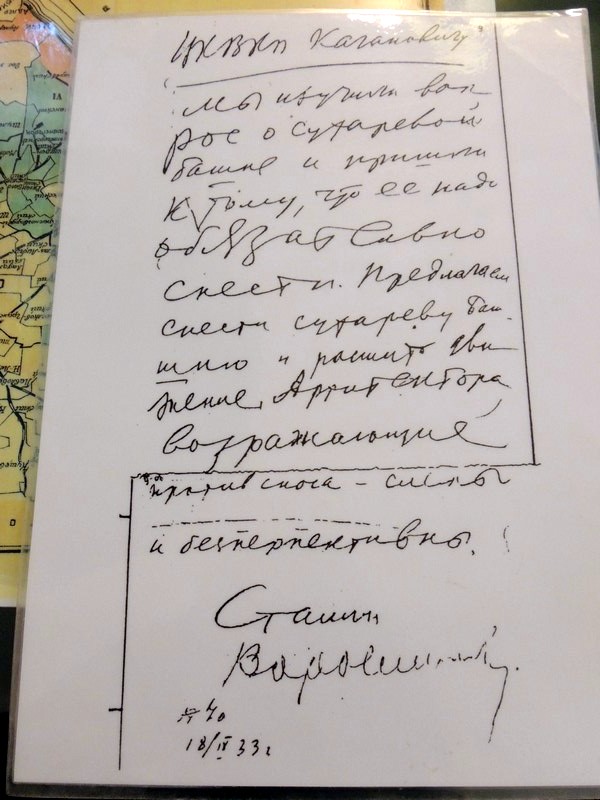 ЦКВКП Кагановичу
Мы изучили воп
рос о сухаревой
башне и пришли
к тому, что ее надо
обязательно
снести. Предлагаем
снести сухареву баш-
ню и расшить дви
жение. Архитектора,
возражающие
против сноса – слепы
и бесперспективны.
Сталин
Ворошилов
18/IX 33 г